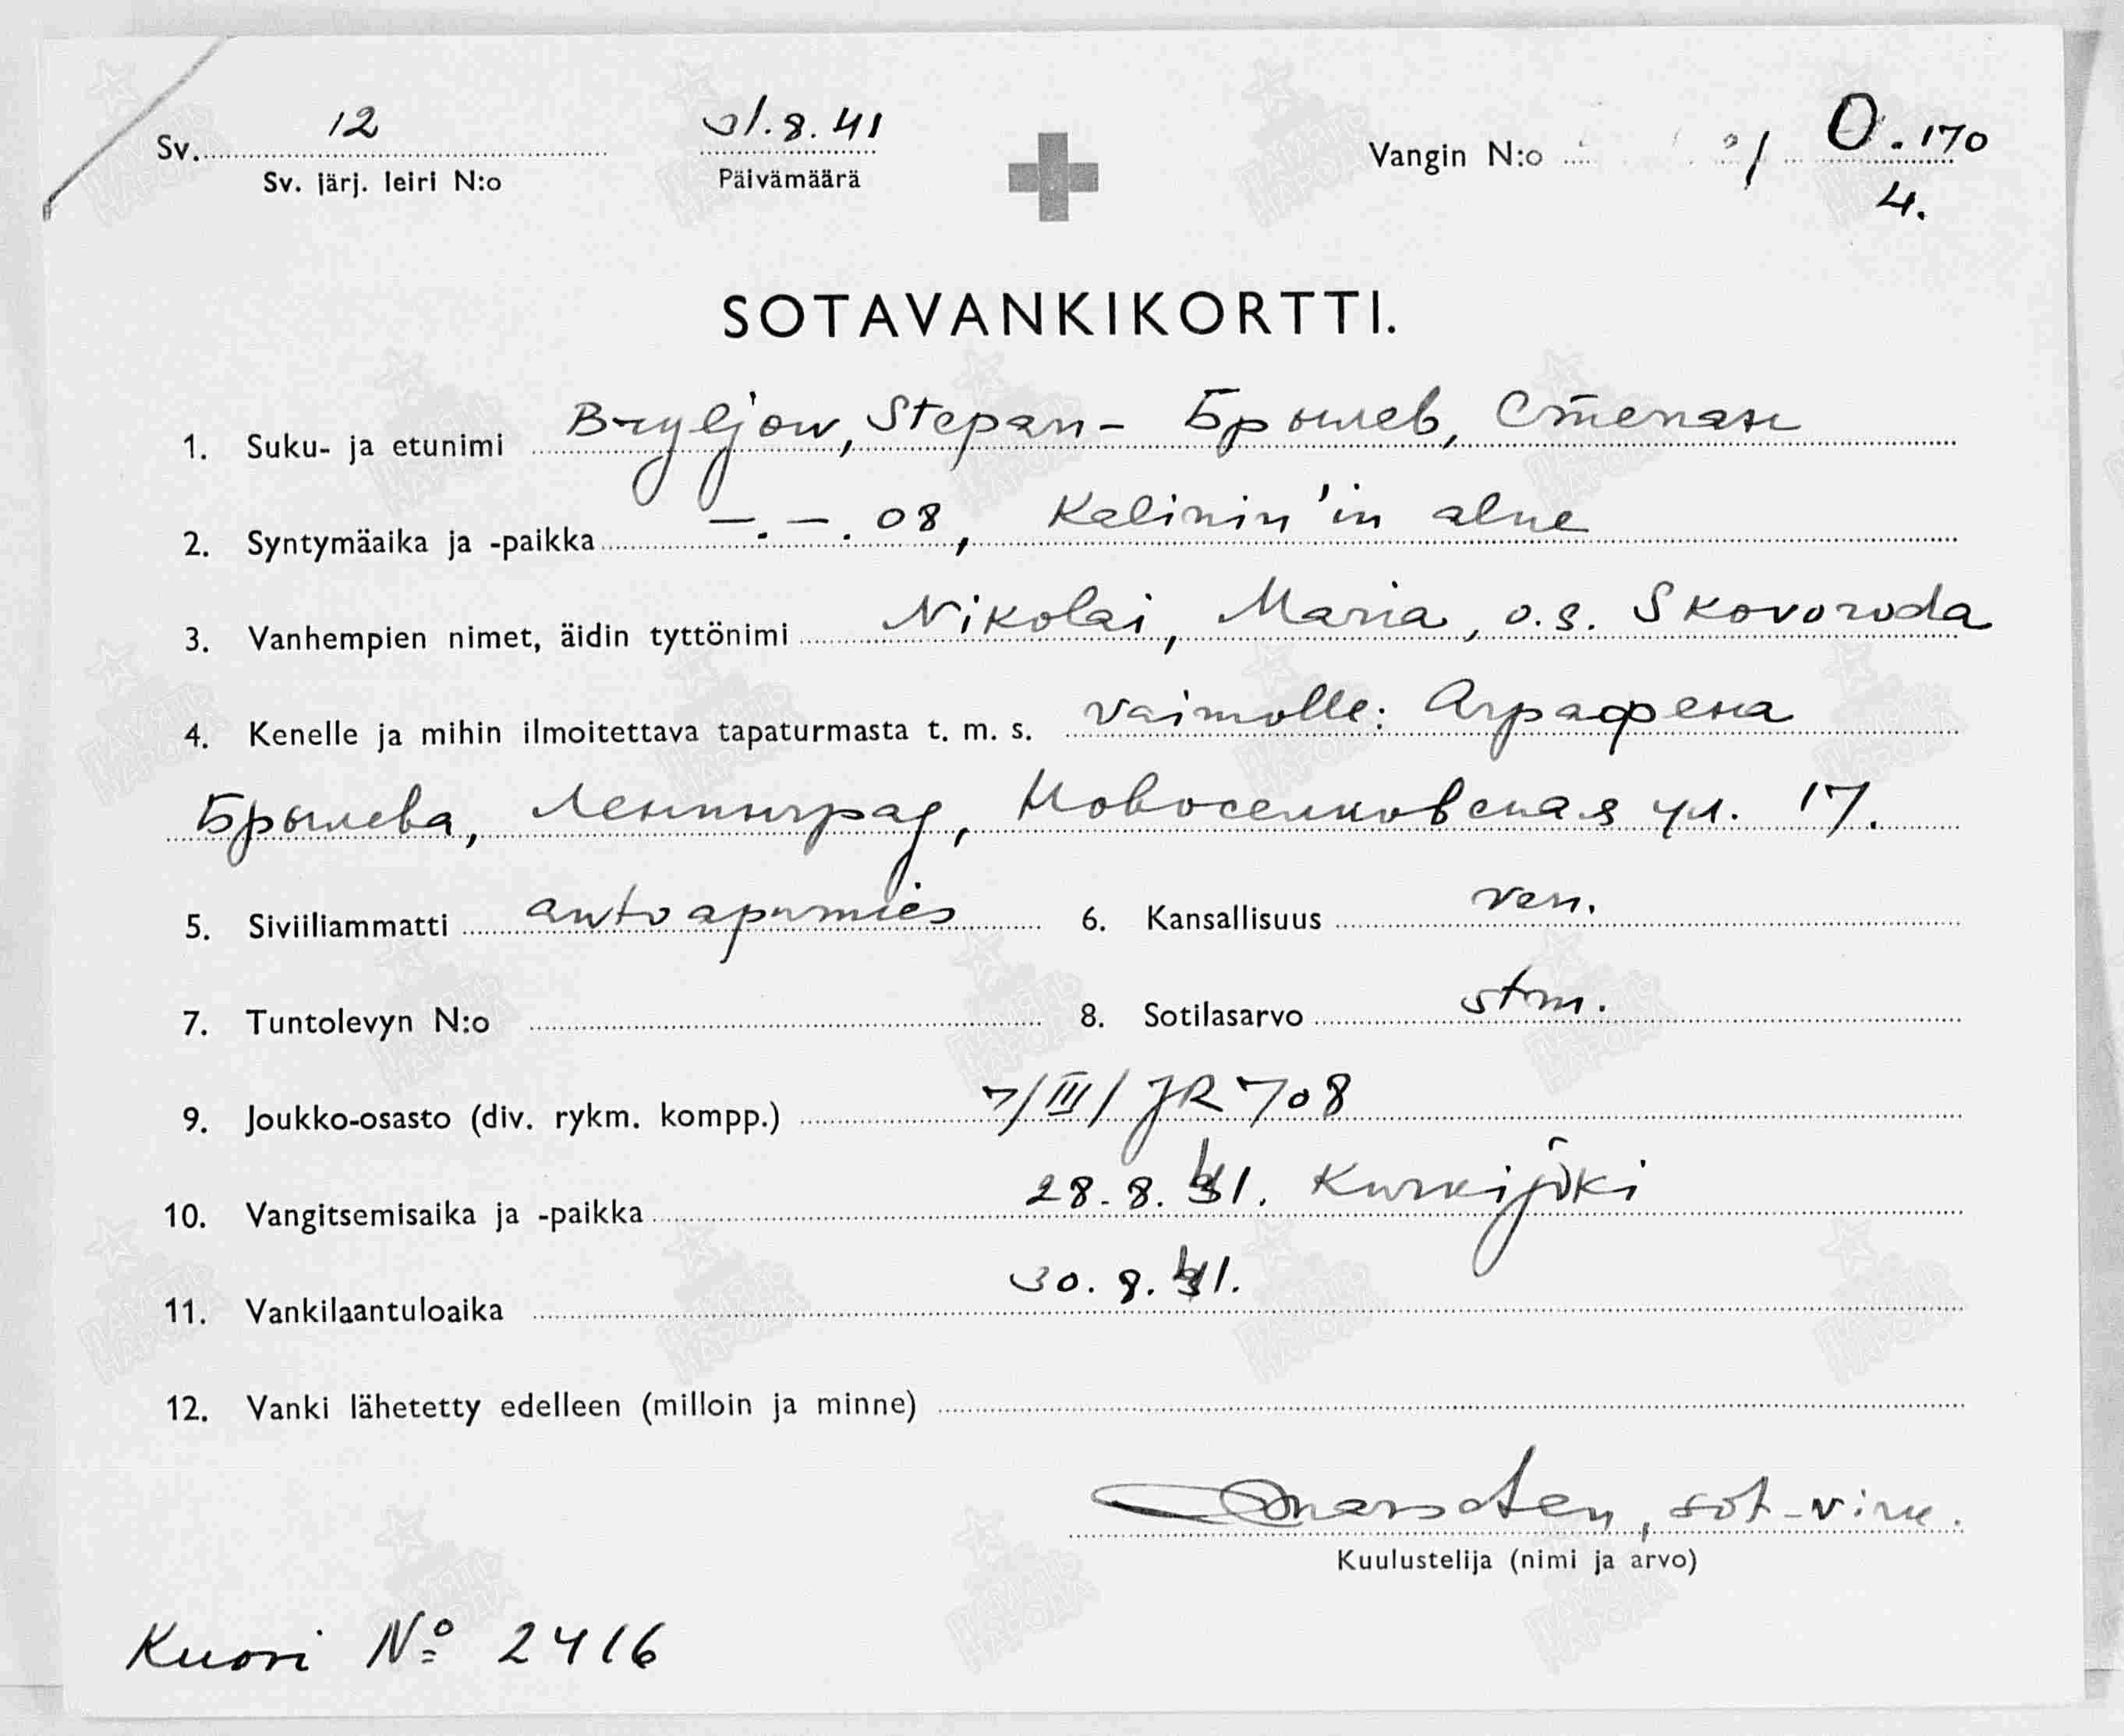 Sv. 12 31.8.41 Vangin N:o / O.170
Sv. järj. leiri N:o Päivämäärä 4.
SOTAVANKIKORTTI.
1. Suku- ja etunimi Bryljow, Stepan - Брылев, Степан
2. Syntymäaika ja -paikka —.—.08, Kalinin'in alue
3. Vanhempien nimet, äidin tyttönimi Nikolai, Maria, o.s. Skovoroda
4. Kenelle ja mihin ilmoitettava tapaturmasta t. m. s. vaimolle: Аграфена
Брылева, Ленинград, Новоселковская ул. 17.
5. Siviiliammatti autoapumies 6. Kansallisuus ven.
7. Tuntolevyn N:o 8. Sotilasarvo stm.
9. Joukko-osasto (div. rykm. kompp.) 7/III/JR 708
10. Vangitsemisaika ja -paikka 28.8.41. Kurkijoki
11. Vankilaantuloaika 30.8.41.
12. Vanki lähetetty edelleen (milloin ja minne)
sot-virk.
Kuulustelija (nimi ja arvo)
Kuori Nº 2416